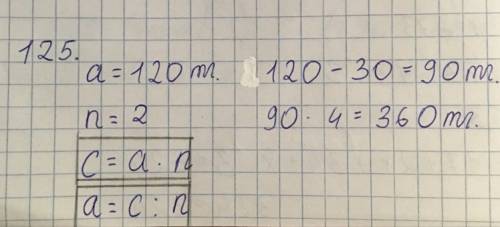 125.
a = 120 тг.
n = 2
c = a · n
a = c : n
120 - 30 = 90 тг.
90 · 4 = 360 тг.